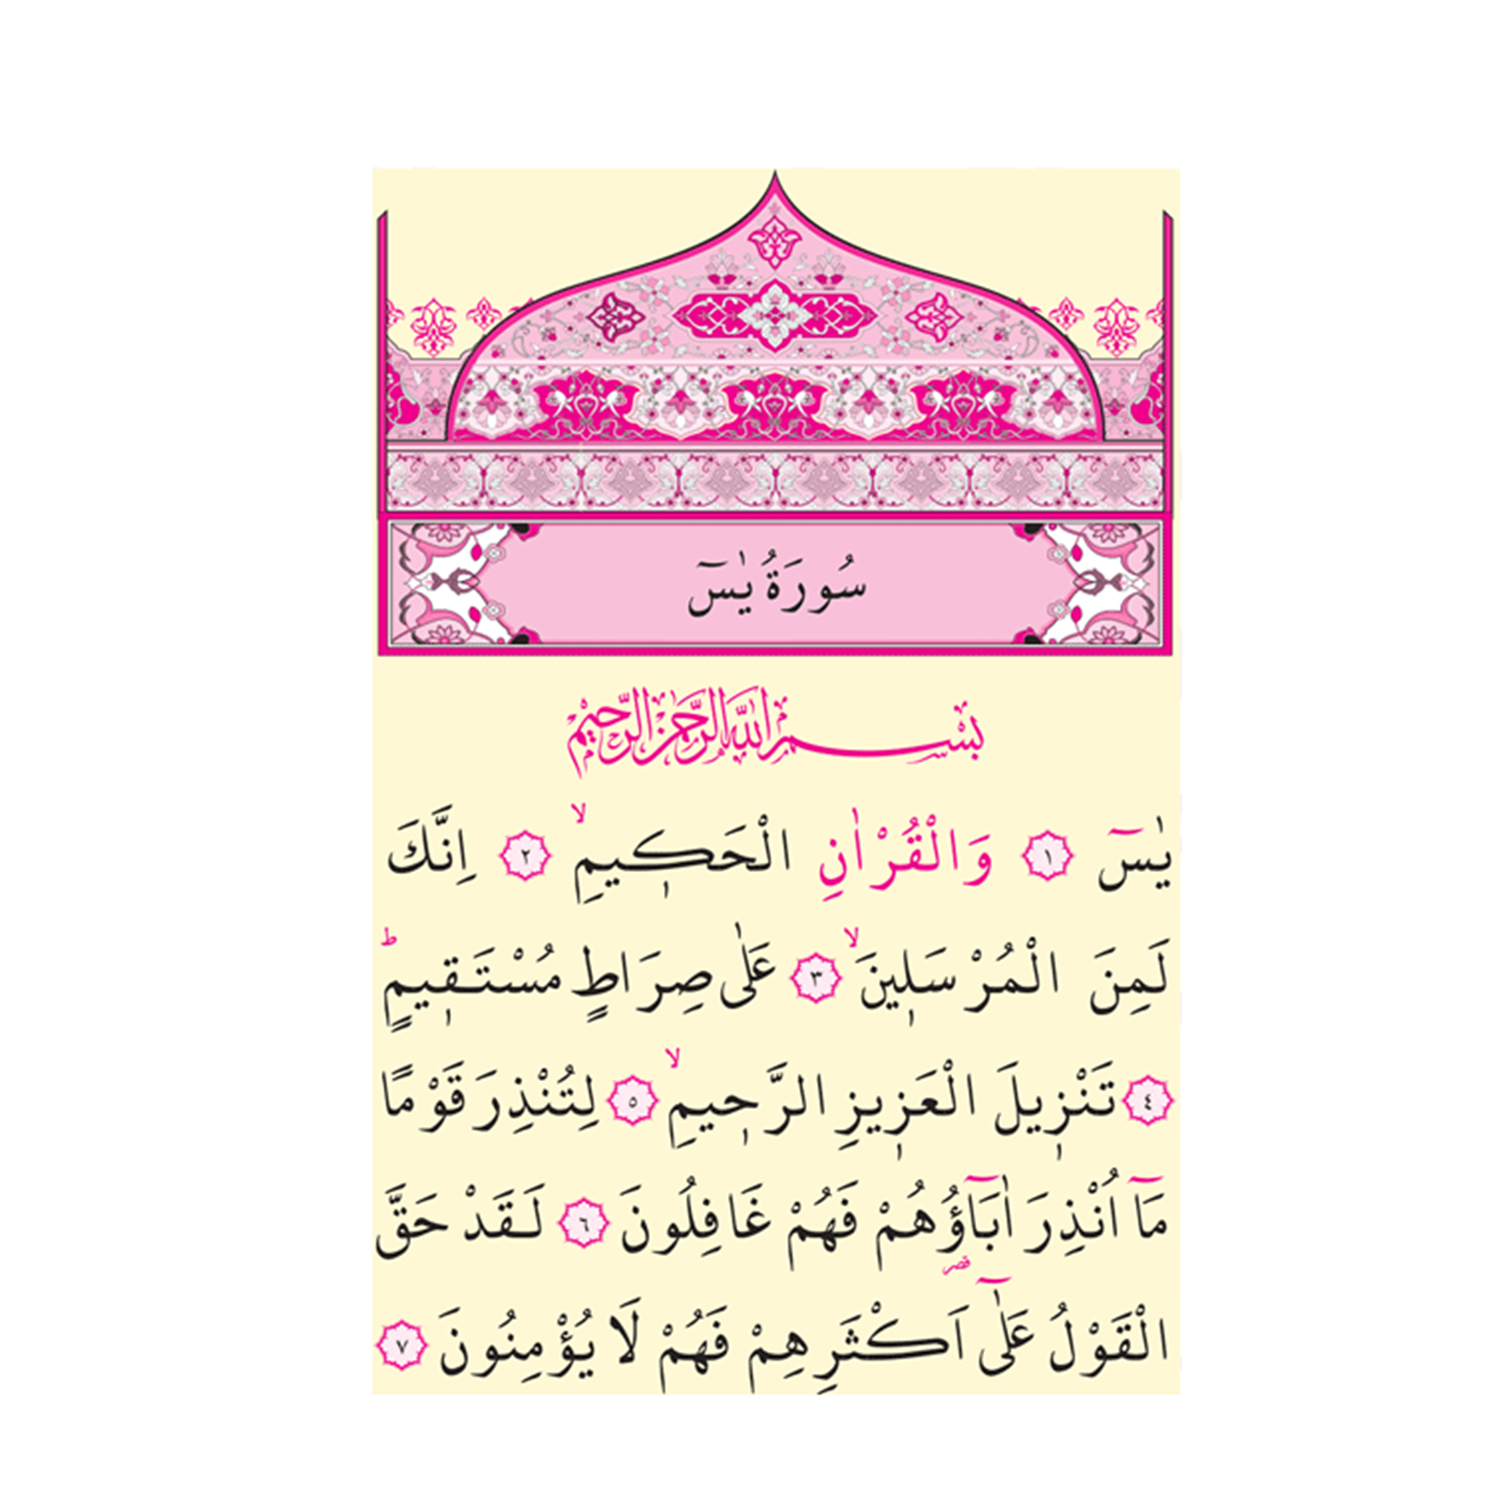 سُورَةُ يٰسٓ
بِسْمِ اللّٰهِ الرَّحْمٰنِ الرَّحِيمِ
يٰسٓ ﴿١﴾ وَالْقُرْاٰنِ الْحَكٖيمِۙ ﴿٢﴾ اِنَّكَ
لَمِنَ الْمُرْسَلٖينَۙ ﴿٣﴾ عَلٰى صِرَاطٍ مُسْتَقٖيمٍۜ
﴿٤﴾ تَنْزٖيلَ الْعَزٖيزِ الرَّحٖيمِۙ ﴿٥﴾ لِتُنْذِرَ قَوْمًا
مَٓا اُنْذِرَ اٰبَٓاؤُ۬هُمْ فَهُمْ غَافِلُونَ ﴿٦﴾ لَقَدْ حَقَّ
الْقَوْلُ عَلٰٓى اَكْثَرِهِمْ فَهُمْ لَا يُؤْمِنُونَ ﴿٧﴾